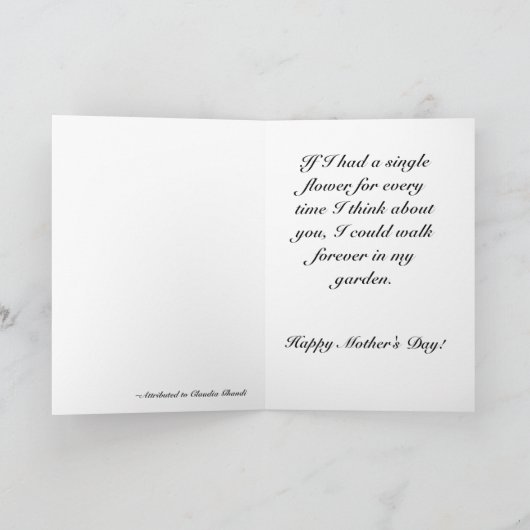 ~Attributed to Claudia Ghandi
If I had a single
flower for every
time I think about
you, I could walk
forever in my
garden.
Happy Mother's Day!